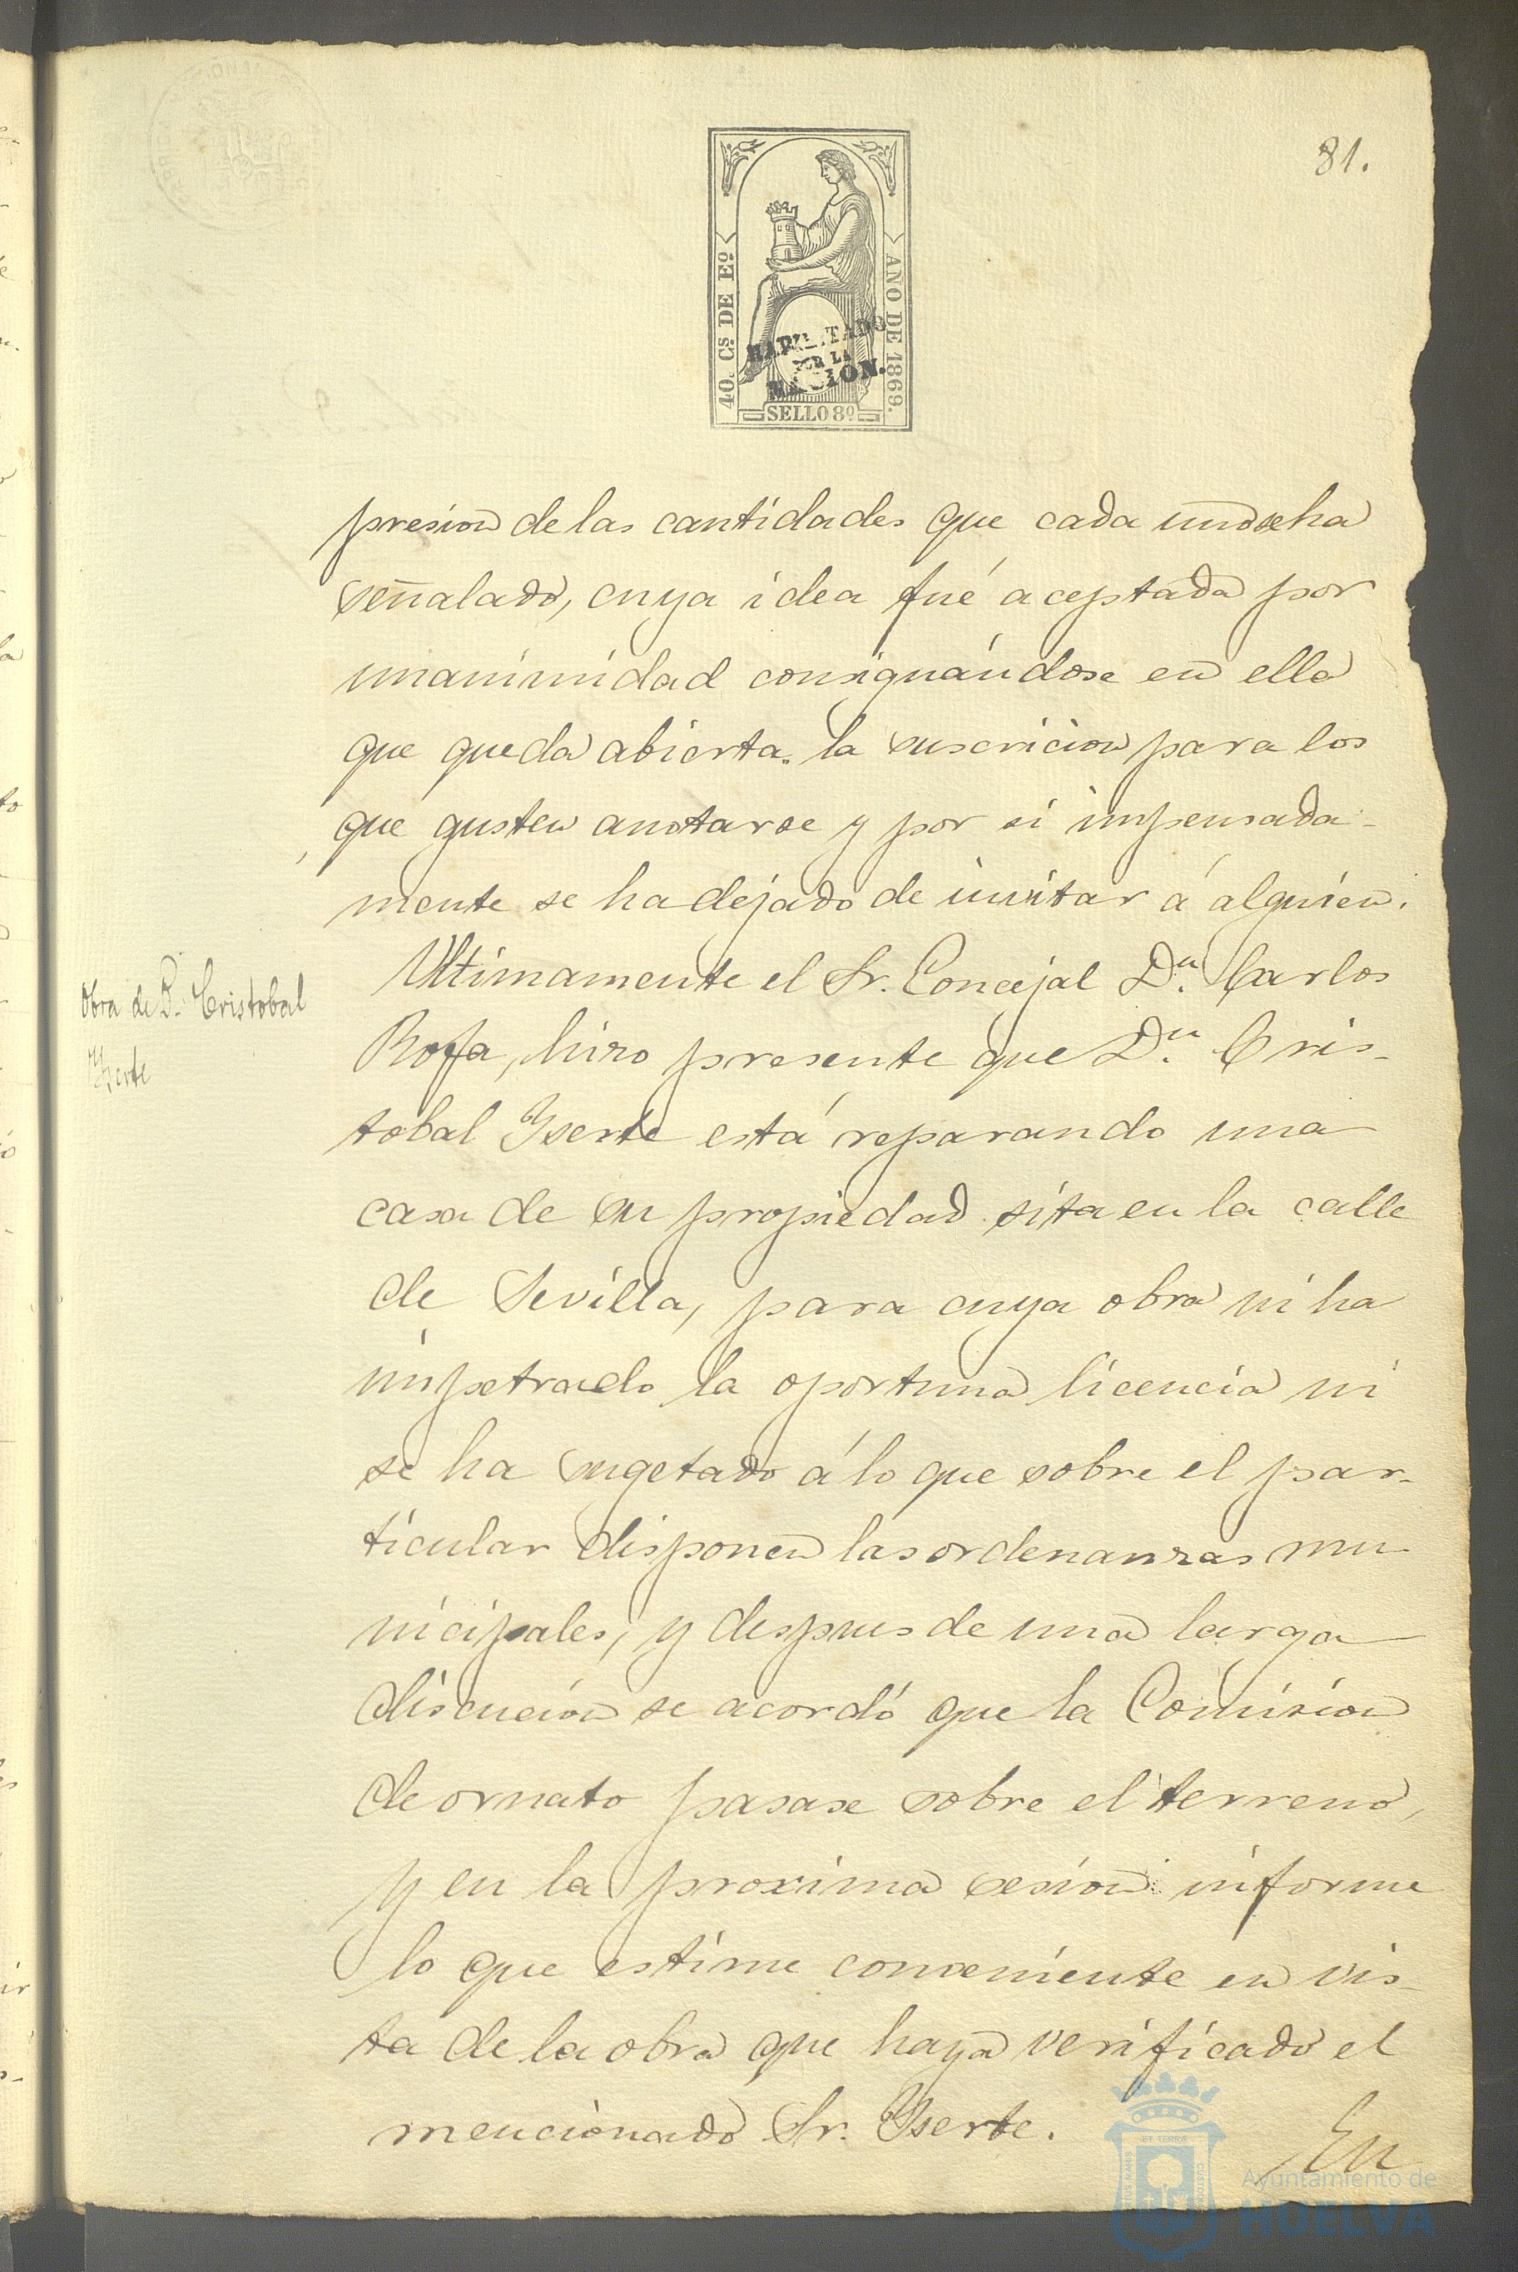 81.
40. Cs. DE Eº.
AÑO DE 1869.
HABILITADO
POR LA
NACION.
SELLO 8º
presion de las cantidades que cada uno se ha
señalado, cuya idea fué aceptada por
unanimidad consignándose en ella
que queda abierta la suscricion para los
que gusten anotarse y por si impensada-
mente se ha dejado de invitar á alguien.
Obra de D. Cristobal
Yserte
Ultimamente el Sr. Concejal Dn. Carlos
Rofa, hizo presente que Dn. Cris-
tobal Yserte está reparando una
casa de su propiedad sita en la calle
de Sevilla, para cuya obra ni ha
impetrado la oportuna licencia ni
se ha sugetado á lo que sobre el par-
ticular disponen las ordenanzas mu-
nicipales, y despues de una larga
discucion se acordó que la Comision
de ornato pasase sobre el terreno,
y en la proxima sesion informe
lo que estime conveniente en vis-
ta de la obra que haya verificado el
mencionado Sr. Yserte.
En
Ayuntamiento de
HUELVA